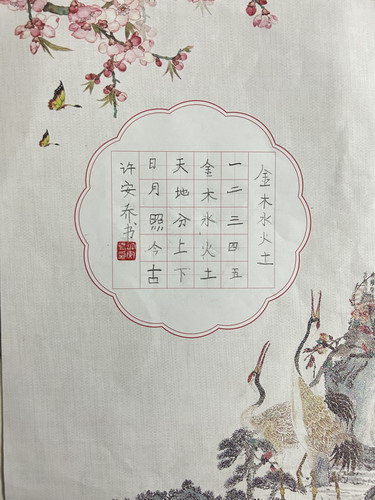 金木水火土
一二三四五
金木水火土
天地分上下
日月照今古
许安乔书